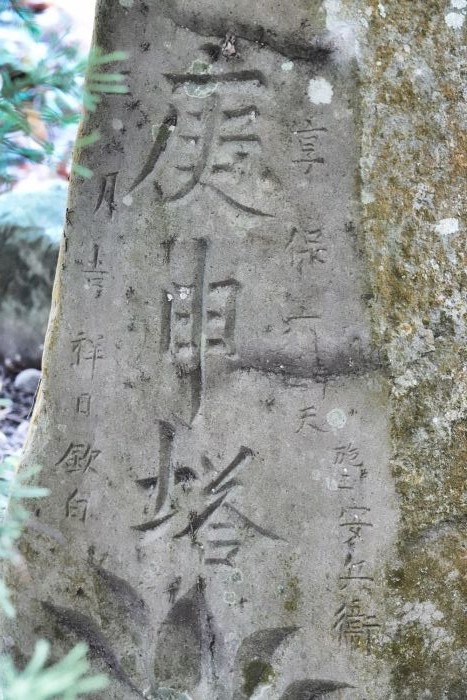 享保六丑天 施主 安兵衛
庚申塔
月吉祥日 欽白